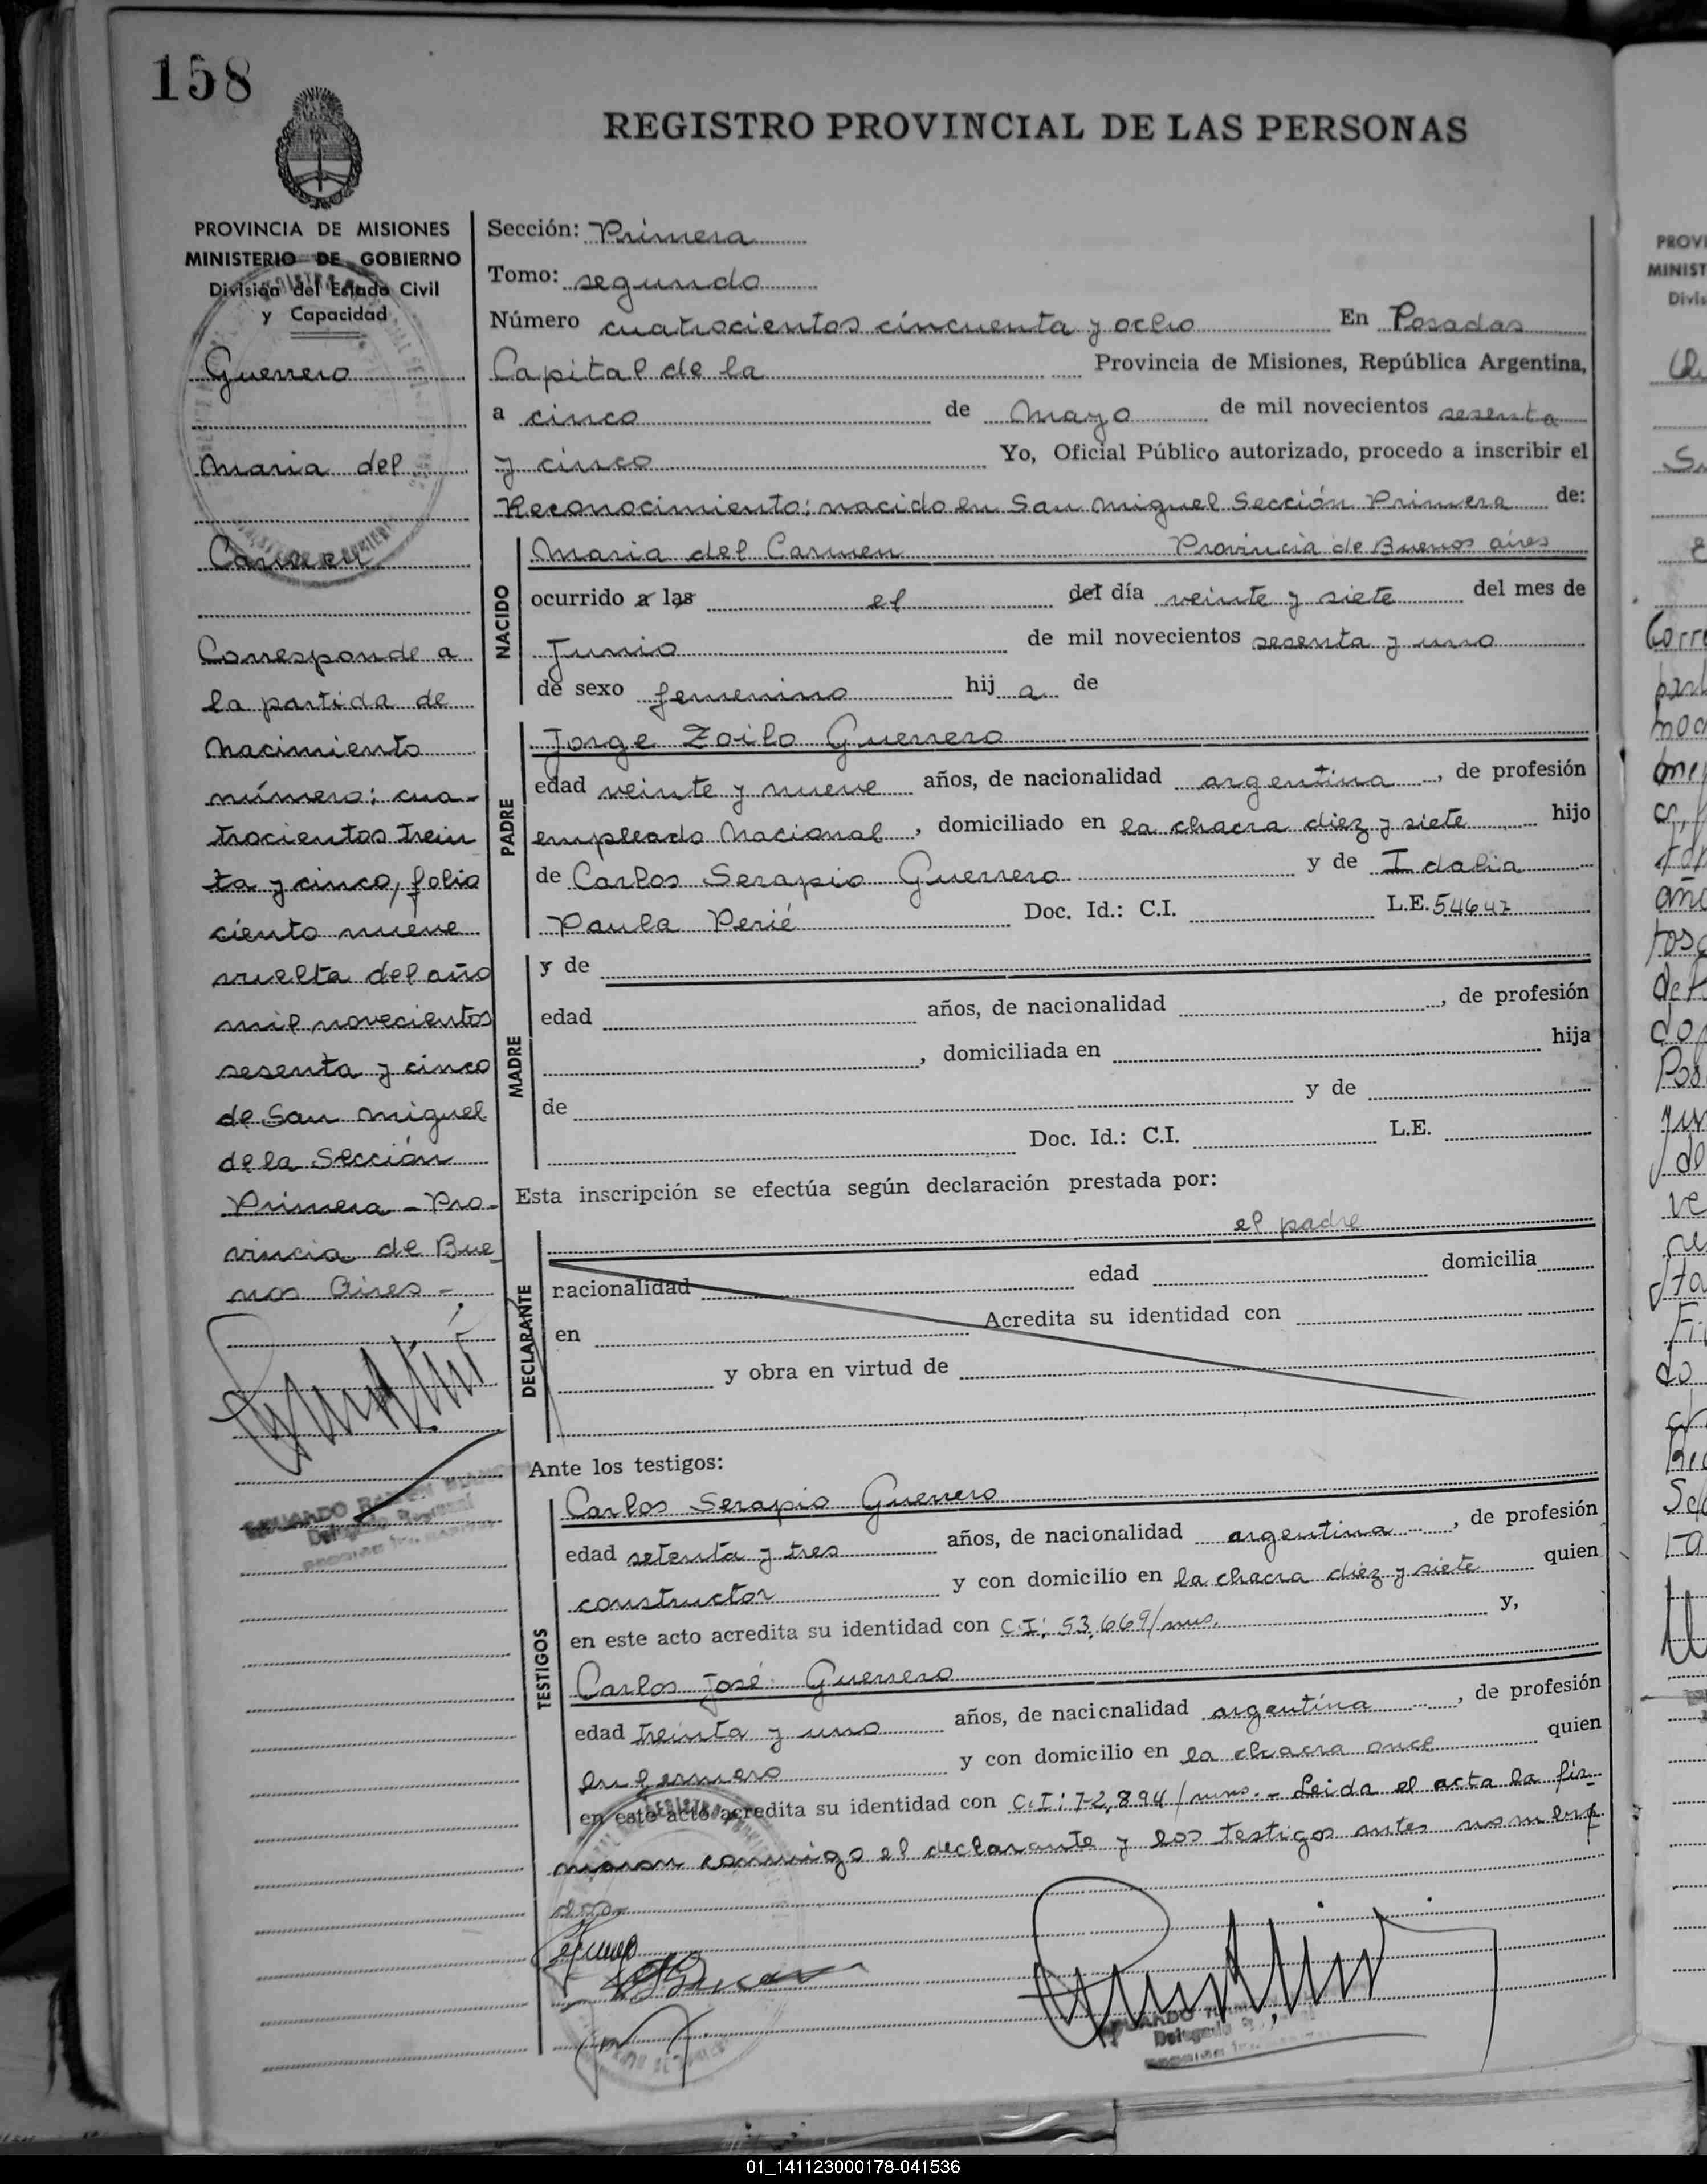 158
REGISTRO PROVINCIAL DE LAS PERSONAS
PROVINCIA DE MISIONES
MINISTERIO DE GOBIERNO
División del Estado Civil
y Capacidad
Guerrero
Maria del
Carmen
Corresponde a
la partida de
Nacimiento
número; cua-
trocientos trein
ta y cinco, folio
ciento nueve
vuelta del año
mil novecientos
sesenta y cinco
de San Miguel
de la Sección
Primera - Pro-
vincia de Bue
nos Aires -
Sección: Primera
Tomo: segundo
Número cuatrocientos cincuenta y ocho En Posadas
Capital de la Provincia de Misiones, República Argentina,
a cinco de Mayo de mil novecientos sesenta
y cinco Yo, Oficial Público autorizado, procedo a inscribir el
Reconocimiento: nacido en San Miguel Sección Primera de:
NACIDO
Maria del Carmen Provincia de Buenos aires
ocurrido a las el del día veinte y siete del mes de
Junio de mil novecientos sesenta y uno
de sexo femenino hij a de
PADRE
Jorge Zoilo Guerrero
edad veinte y nueve años, de nacionalidad argentina, de profesión
empleado Nacional, domiciliado en la chacra diez y siete hijo
de Carlos Serapio Guerrero y de Idalia
Paula Perié Doc. Id.: C.I. L.E. 54647
MADRE
y de
edad años, de nacionalidad , de profesión
, domiciliada en hija
de y de
Doc. Id.: C.I. L.E.
Esta inscripción se efectúa según declaración prestada por:
DECLARANTE
el padre
nacionalidad edad domicilia
en Acredita su identidad con
y obra en virtud de
Ante los testigos:
TESTIGOS
Carlos Serapio Guerrero
edad setenta y tres años, de nacionalidad argentina, de profesión
constructor y con domicilio en la chacra diez y siete quien
en este acto acredita su identidad con C.I: 53,669/mns. y,
Carlos José Guerrero
edad treinta y uno años, de nacionalidad argentina, de profesión
enfermero y con domicilio en la chacra once quien
en este acto acredita su identidad con C.I: 72,894/mns. - Leida el acta la fir-
maron conmigo el declarante y los testigos antes nombra
dos.
01_141123000178-041536